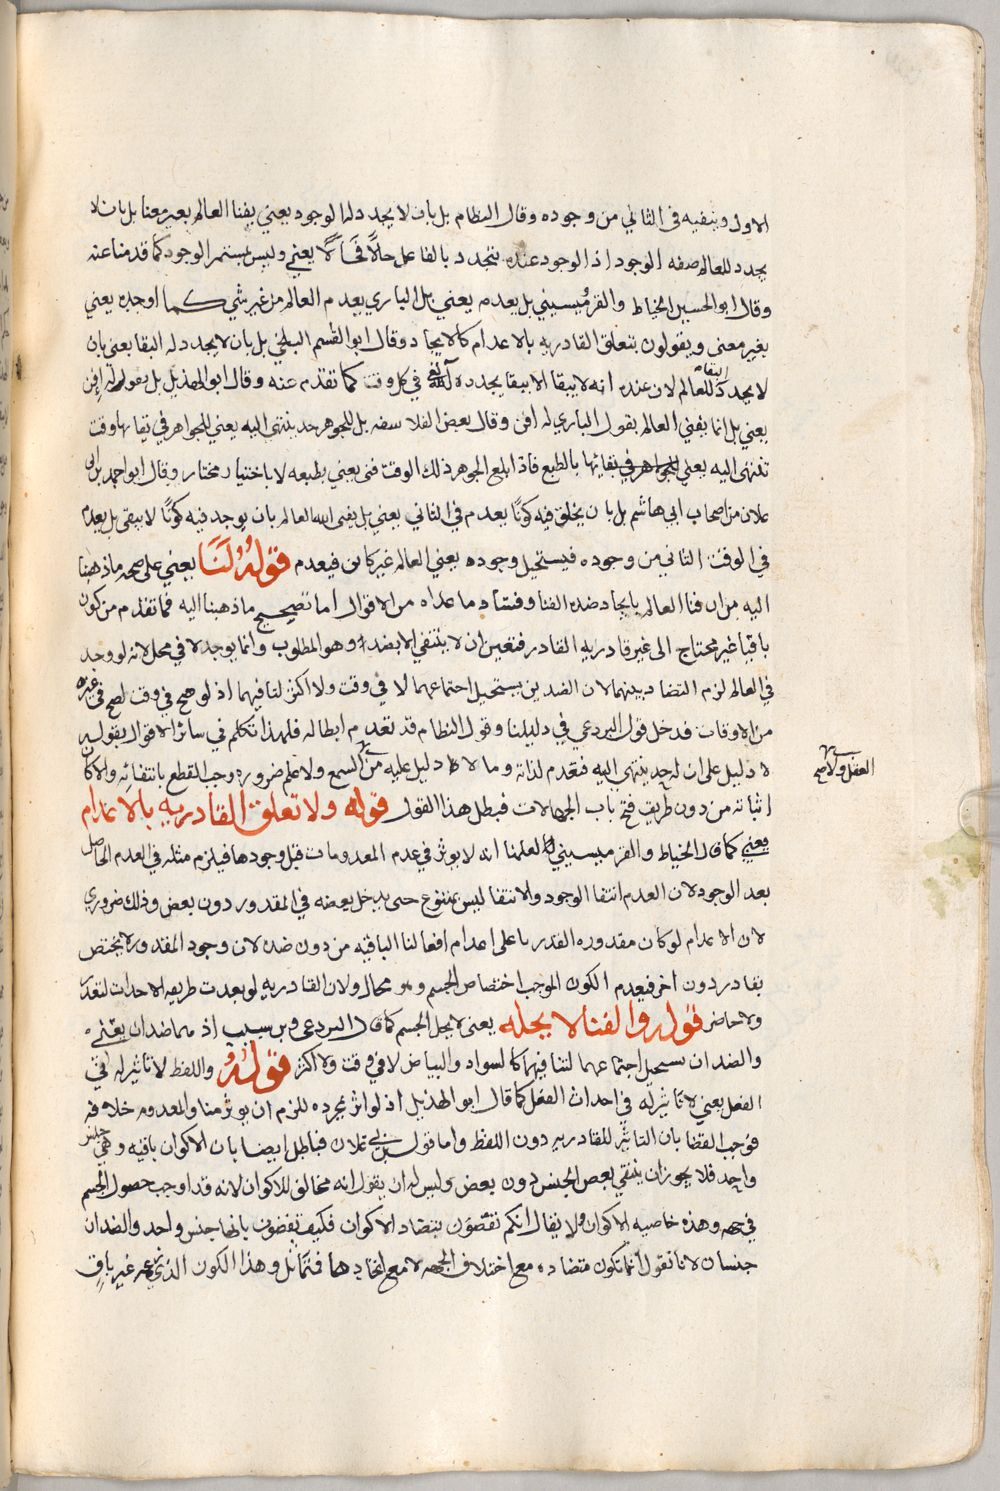 الاول وينفيه في الثاني من وجوده وقال النظام بل بان لا يجدد له الوجود يعني يفنا العالم بغير معنا بل بان لا
يجدد للعالم صفه الوجود اذ الوجود عنده يتجدد بالفاعل حالاً فحالاً يعني وليس يستمر الوجود كما قدمنا عنه
وقال ابو الحسين الخياط والقرميسيني بل يعدم يعني بل الباري يعدم العالم من غير شي كما اوجده يعني
بغير معنى ويقولون بتعلق القادريه بالاعدام كالايجاد وقال ابو القسم البلخي بل بان لا يجدد له البقا يعني بان
لا يجدد للعالم البقا لان عنده انه لا يبقا الا ببقا يجدده الله في كل وقت كما تقدم عنه وقال ابو الهذيل بل بقوله له افن
يعني بل انما يفني العالم بقول الباري له افن وقال بعض الفلاسفه بل للجوهر حد ينتهى اليه يعني للجواهر في بقايها وقت
تنتهى اليه يعني للجواهر في بقائها بالطبع فاذا بلغ الجوهر ذلك الوقت فنى يعني بطبعه لا باختيار مختار وقال ابو احمد بن ابي
علان من اصحاب ابي هاشم بل بان يخلق فيه كونًا يعدم في الثاني يعني بل يفنى الله العالم بان يوجد فيه كونًا لا يبقى بل يعدم
في الوقت الثاني من وجوده فيستحيل وجوده يعني العالم غير كاين فيعدم قوله لنا يعني على صحه ما ذهبنا
اليه من ان فنا العالم بايجاد ضده الفنا وفساد ما عداه من الاقوال اما تصحيح ما ذهبنا اليه فما تقدم من كون
باقيا غير محتاج الى غير قادريه القادر فتعين ان لا ينتفي الا بضد وهو المطلوب وانما يوجد لا في محل لانه لو وجد
في العالم لزم التضاد بينهما لان الضدين يستحيل اجتماعهما لا في وقت ولا اكثر لتنافيهما اذ لو صح في وقت لصح في غيره
من الاوقات فدخل قول البردعي في دليلنا وقول النظام قد تقدم ابطاله فلهذا تكلم في سائر الاقوال بقوله
لا دليل على ان له حد ينتهى اليه فتعدم لذاته وما لا دليل عليه من السمع ولا علم ضروره وجب القطع بانتفائه والا كان
العقل ولا صح
اثباته من دون طريق فتح باب الجهالات فبطل هذا القول قوله ولا تعلق القادريه بالاعدام
يعني كما قال الخياط والقرميسيني لعلمنا انه لا يوثر في عدم المعدومات قبل وجودها فيلزم مثله في العدم الحاصل
بعد الوجود لان العدم انتفا الوجود والانتفا ليس بمتنوع حتى يدخل بعضه في المقدور دون بعض وذلك ضروري
لان الاعدام لو كان مقدوره لقدرنا على اعدام افعالنا الباقيه من دون ضد لان وجود المقدور لا يختص
بقادر دون اخر فيعدم الكون الموجب اختصاص الجسم وهو محال ولان القادريه لو تعدت طريقه الاحداث لتعدت
ولا حاصر قوله والفنا لا يحله يعني لا يحل الجسم كما قال البردعي وبن سبيب اذ هما ضدان يعني
والضدان يستحيل اجتماعهما لتنافيهما كالسواد والبياض لا في وقت ولا اكثر قوله واللفظ لا تاثير له في
الفعل يعني لا تاثير له في احداث الفعل كما قال ابو الهذيل اذ لو اثر بمجرده للزم ان يوثر منا والمعدوم خلافه
فوجب القضا بان التاثير للقادريه دون اللفظ واما قول بن علان فباطل ايضا بان الاكوان باقيه وهي جنس
واحد فلا يجوز ان ينتفي بعض الجنس دون بعض وليس له ان يقول انه مخالف للاكوان لانه قد اوجب حصول الجسم
في جهه وهذه خاصيه الاكوان ولا يقال انكم تقضون بتضاد الاكوان فكيف تقضون بانها جنس واحد والضدان
جنسان لانا نقول انما تكون متضاده مع اختلاف الجهه لا مع اتحادهما فتماثل وهذا الكون الذي زعم غير باقٍ